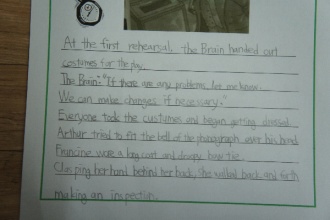 9
At the first rehearsal, the Brain handed out
costumes for the play.
The Brain: "If there are any problems, let me know.
We can make changes if necessary."
Everyone took the custumes and began getting dressed
Arthur tried to fit the bell of the phonograph over his head
Francine wore a long coat and droopy bow tie.
Clasping her hand behind her back, She walked back and forth
making an inspection.